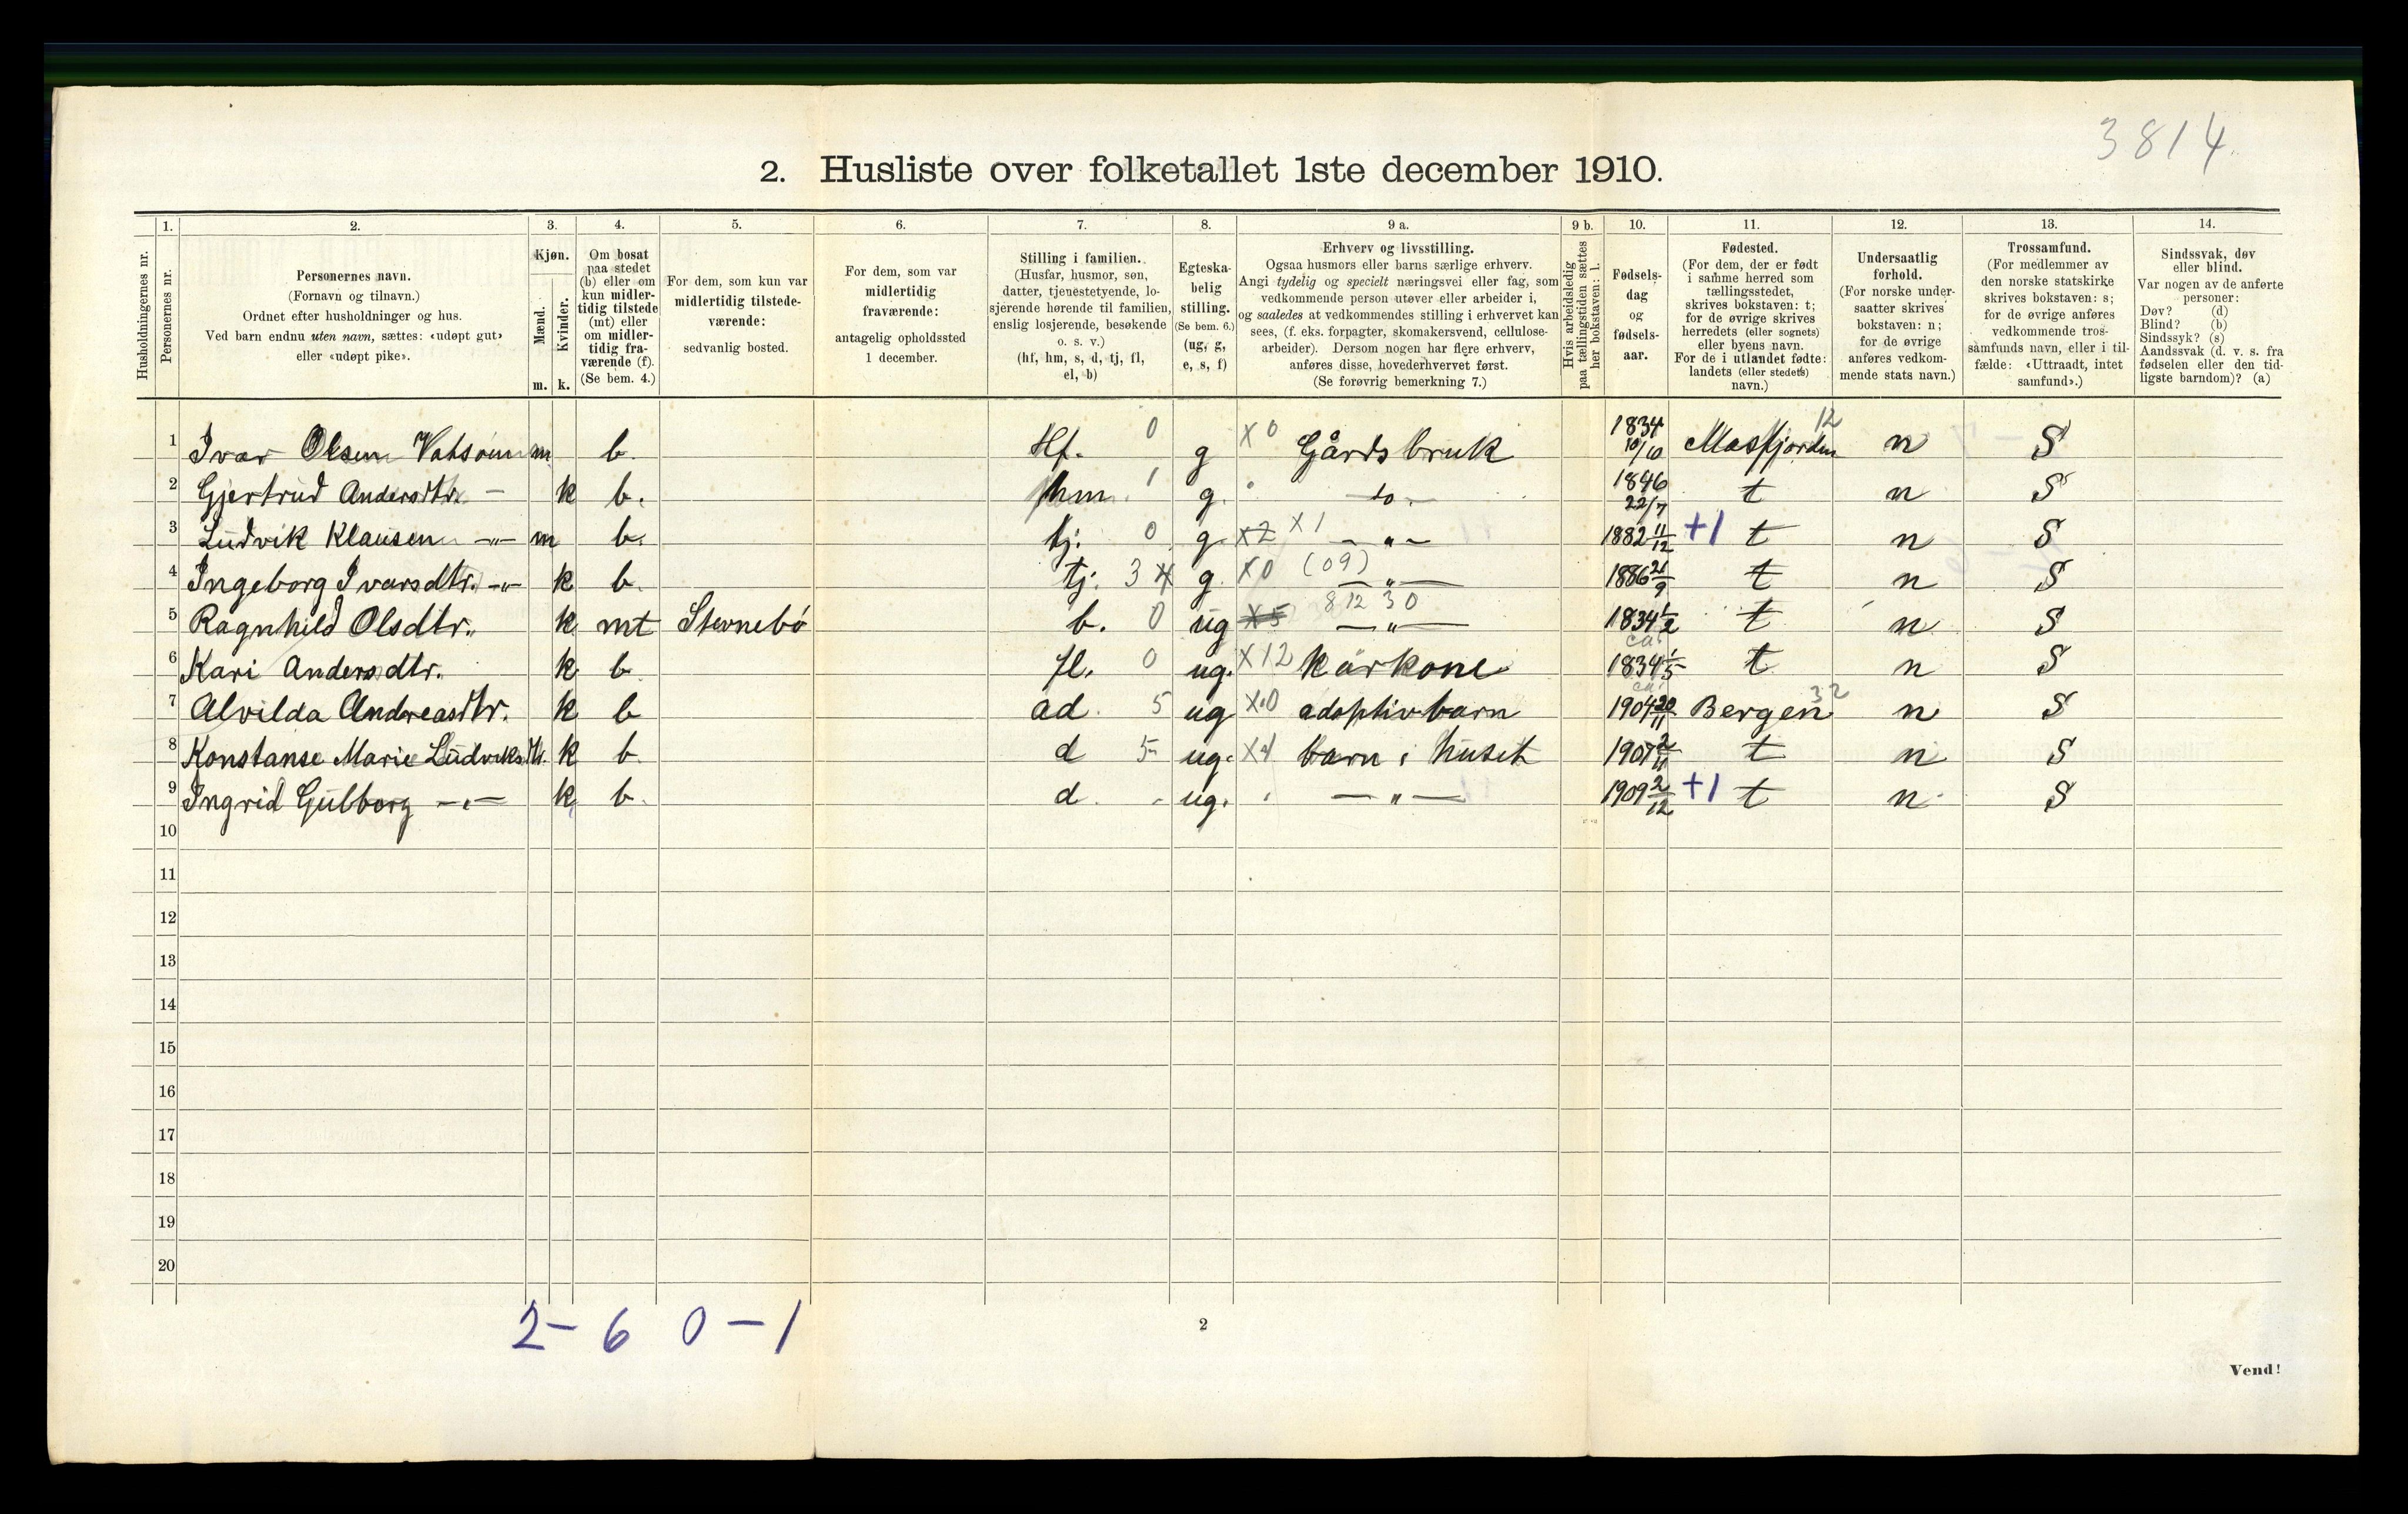 3814.
2. Husliste over folketallet 1ste december 1910.
Husholdningernes nr.
1.
Personernes nr.
2.
Personernes navn.
(Fornavn og tilnavn.)
Ordnet efter husholdninger og hus.
Ved barn endnu uten navn, sættes: «udøpt gut»
eller «udøpt pike».
3.
Kjøn.
Mænd.
Kvinder.
m. k.
4.
Om bosat
paa stedet
(b) eller om
kun midler-
tidig tilstede
(mt) eller
om midler-
tidig fra-
værende (f).
(Se bem. 4.)
5.
For dem, som kun var
midlertidig tilstede-
værende:
sedvanlig bosted.
6.
For dem, som var
midlertidig
fraværende:
antagelig opholdssted
1 december.
7.
Stilling i familien.
(Husfar, husmor, søn,
datter, tjenestetyende, lo-
sjerende hørende til familien,
enslig losjerende, besøkende
o. s. v.)
(hf, hm, s, d, tj, fl,
el, b)
8.
Egteska-
belig
stilling.
(Se bem. 6.)
(ug, g,
e, s, f)
9 a.
Erhverv og livsstilling.
Ogsaa husmors eller barns særlige erhverv.
Angi tydelig og specielt næringsvei eller fag, som
vedkommende person utøver eller arbeider i,
og saaledes at vedkommendes stilling i erhvervet kan
sees, (f. eks. forpagter, skomakersvend, cellulose-
arbeider). Dersom nogen har flere erhverv,
anføres disse, hovederhvervet først.
(Se forøvrig bemerkning 7.)
9 b.
Hvis arbeidsledig
paa tællingstiden sættes
her bokstaven: l.
10.
Fødsels-
dag
og
fødsels-
aar.
11.
Fødested.
(For dem, der er født
i samme herred som
tællingsstedet,
skrives bokstaven: t;
for de øvrige skrives
herredets (eller sognets)
eller byens navn.
For de i utlandet fødte:
landets (eller stedets)
navn.)
12.
Undersaatlig
forhold.
(For norske under-
saatter skrives
bokstaven: n;
for de øvrige
anføres vedkom-
mende stats navn.)
13.
Trossamfund.
(For medlemmer av
den norske statskirke
skrives bokstaven: s;
for de øvrige anføres
vedkommende tros-
samfunds navn, eller i til-
fælde: «Uttraadt, intet
samfund».)
14.
Sindssvak, døv
eller blind.
Var nogen av de anførte
personer:
Døv? (d)
Blind? (b)
Sindssyk? (s)
Aandssvak (d. v. s. fra
fødselen eller den tid-
ligste barndom)? (a)
1 Ivar Olsen m b. Hf. 0 g x0 Gårdsbruk 1834 10/10 Masfjorden 12 n S
2 Gjertrud Andersdtr. - k b. hm. 1 g. do. 1846 22/7 t n S
3 Ludvik Klausen -"- m b. tj. 0 g x2 x1 -"- 1882 11/12 +1 t n S
4 Ingeborg Ivarsdtr. -"- k b. tj. 3 4 g. x0 (09) -"- 1886 21/9 t n S
5 Ragnhild Olsdtr. k mt Sternebø b. 0 ug x5 812 30 -"- 1834 1/2 t n S
6 Kari Andersdtr. k b fl. 0 ug. x12 kårkone ca. 1834 1/5 t n S
7 Alvilda Andreasdtr. k b ad. 5 ug x0 adoptivbarn 1904 20/11 Bergen 32 n S
8 Konstanse Marie Ludviksdtr. k b d 5 ug. x4 barn i huset 1907 2/11 t n S
9 Ingrid Gulborg -"- k b. d. - ug. -"- 1909 2/12 +1 t n S
10
11
12
13
14
15
16
17
18
19
20
2 - 6 0 - 1
2
Vend!